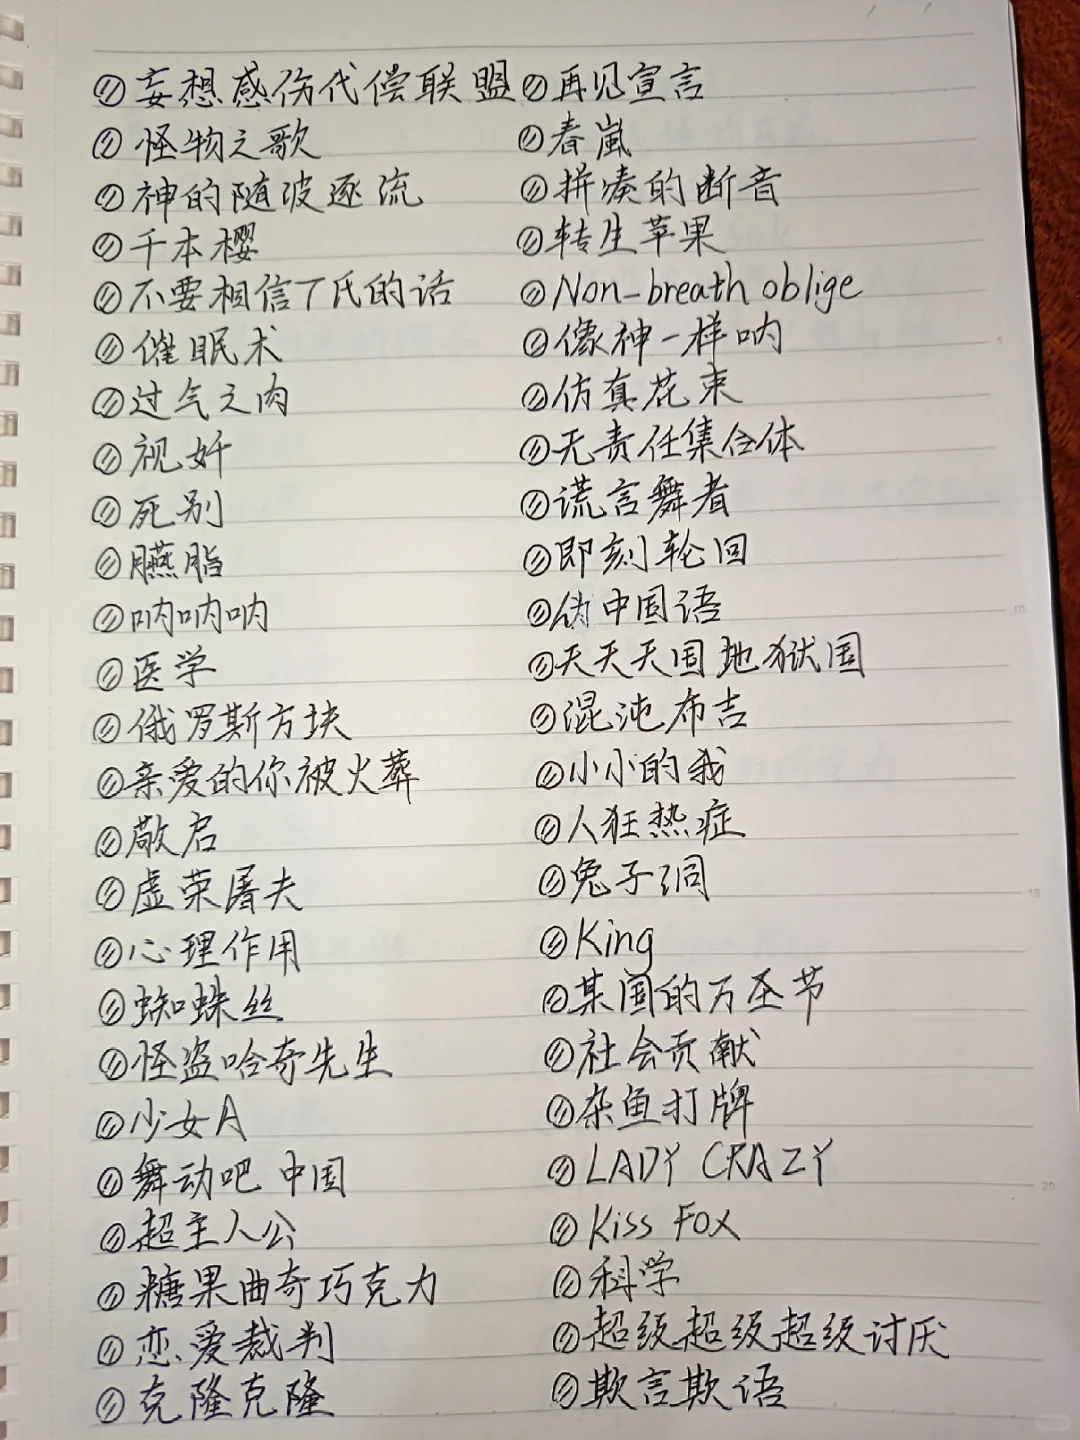 妄想感伤代偿联盟
怪物之歌
神的随波逐流
千本樱
不要相信T氏的话
催眠术
过气之肉
视奸
死别
臙脂
呐呐呐
医学
俄罗斯方块
亲爱的你被火葬
敬启
虚荣屠夫
心理作用
蜘蛛丝
怪盗哈奇先生
少女A
舞动吧 中国
超主人公
糖果曲奇巧克力
恋爱裁判
克隆克隆
再见宣言
春嵐
拼凑的断音
转生苹果
Non-breath oblige
像神一样呐
仿真花束
无责任集合体
谎言舞者
即刻轮回
伪中国语
天天天国地狱国
混沌布吉
小小的我
人狂热症
兔子洞
King
某国的万圣节
社会贡献
杂鱼打牌
LADY CRAZY
Kiss FOX
科学
超级超级超级讨厌
欺言欺语